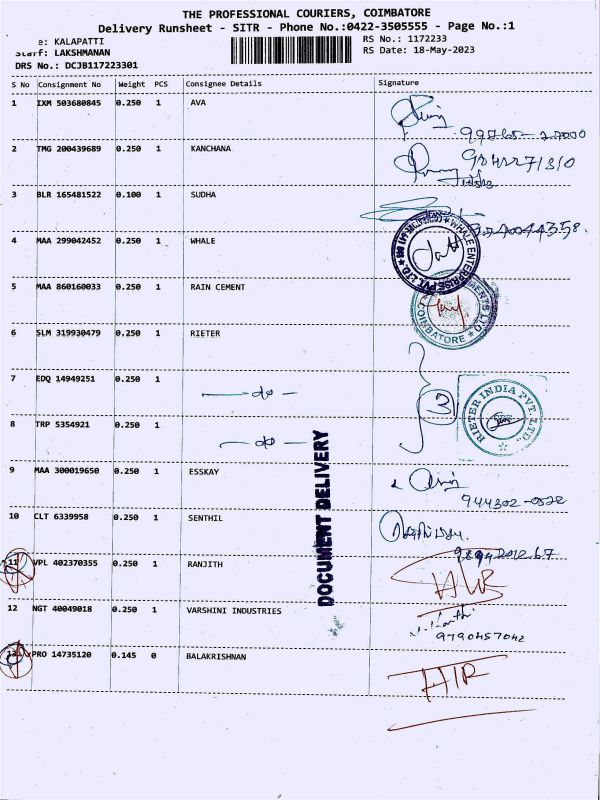 THE PROFESSIONAL COURIERS, COIMBATORE
Delivery Runsheet - SITR - Phone No.:0422-3505555 - Page No.:1
e: KALAPATTI
RS No.: 1172233
Staff: LAKSHMANAN
RS Date: 18-May-2023
DRS No.: DCJB117223301
S No Consignment No Weight PCS Consignee Details Signature
1 IXM 503680845 0.250 1 AVA
2 TMG 200439689 0.250 1 KANCHANA
3 BLR 165481522 0.100 1 SUDHA
4 MAA 299042452 0.250 1 WHALE
WHALE ENTERPRISE PVT. LTD.
5 MAA 860160033 0.250 1 RAIN CEMENT
COIMBATORE
6 SLM 319930479 0.250 1 RIETER
7 EDQ 14949251 0.250 1 — do —
3
RIETER INDIA PVT. LTD.
8 TRP 5354921 0.250 1 — do —
9 MAA 300019650 0.250 1 ESSKAY
944302-0522
10 CLT 6339958 0.250 1 SENTHIL
DOCUMENT DELIVERY
11 VPL 402370355 0.250 1 RANJITH
12 NGT 40049018 0.250 1 VARSHINI INDUSTRIES
9790457042
13 PRO 14735120 0.145 0 BALAKRISHNAN